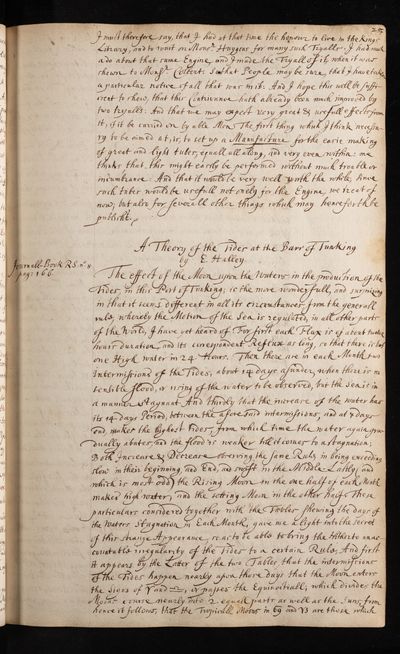 215
I must therefore say, that I had at that time the honour to live in the Kings
Library, and to wait on Monsr Huygens for many such Tryalls. I had much
a do about that same Engine, and I made the Tryall of it, when it was
shewn to Monsr Colbert: So that People may be sure, that I have taken
a particular notice of all that was in it. And I hope this will be suffi-
cient to shew, that this Contrivance hath already been much improved by
two tryalls: And that we may expect very great & usefull effects from
it, if it be carried on by able Men. The first thing which I think necessa-
ry to be aimed at, is, to set up a Manufacture for the easie making
of great and light tubes, equall all along, and very even within: me
thinks that this might easily be performed without much trouble or
incumbrance. And that it would be very well worth the while, since
such tubes would be usefull not only for the Engine, we treat of
now, but also for severall other things which may henceforth be
publisht.
A Theory of the Tides at the Barr of Tunking
by E. Halley.
Journall Book R.S. no 8
pag: 166.
The effect of the Moon upon the Waters in the production of the
Tides, in this Port of Tunking; is the more wonderfull, and surprizing
in that it seems different in all its circumstances, from the generall
rule, whereby the Motion of the Sea is regulated, in all other parts
of the World, I have yet heard of. For first each Flux is of about twelve
hours duration, and its correspondent Reflux as long, so that there is but
one High water in 24 Hours. Then there are in each Month two
Intermissions of the Tides, about 14 days asunder, when there is no
sensible flood, or rising of the water to be observed, but the Sea is in
a manner stagnant. And thirdly that the increase of the water has
its 14 days Period, between the aforesaid intermissions, and at 7 days
end, makes the highest Tides; from which time the water again gra-
dually abates, and the flood is weaker till it comes to a stagnation;
Both Increase & Decrease observing the same Rule, in being exceeding
slow in their beginning and End, and swift in the Middle. Lastly, and
which is most odd, the Rising Moon in the one half of each Month
makes high water, and the setting Moon in the other half. These
particulars considered together with the Tables shewing the days of
the Waters Stagnation in Each Month, gave me Light into the secret
of this strange Appearance, so as to be able to bring the hitherto unac-
countable irregularity of the Tides to a certain Rule. And first
it appears by the Later of the two Tables that the intermissions
of the Tides happen nearly upon those days that the Moon enters
the signs of ♈ and ♎, or passes the Equinoctiall; which divides the
Moons course nearly into 2 equall parts as well as the Suns; from
hence it follows, that the Tropicall Moons in ♋ and ♑ are those which